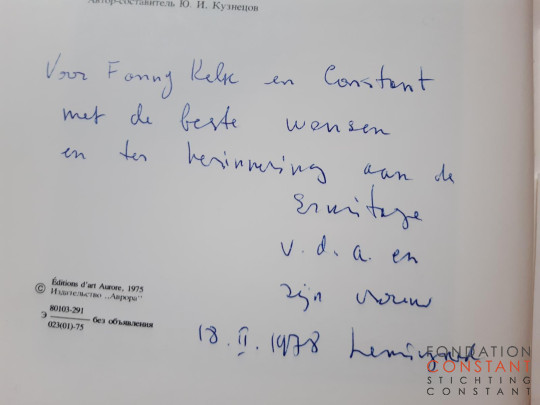 Автор-составитель Ю. И. Кузнецов
Voor Fanny Kelk en Constant
met de beste wensen
en ter herinnering aan de
Ermitage
v. d. a. en
zijn vrouw
© Éditions d'art Aurore, 1975
Издательство „Аврора"
Э 80103-291
023(01)-75 без объявления
18. II. 1978 Leningrad
FONDATION
CONSTANT
STICHTING
CONSTANT